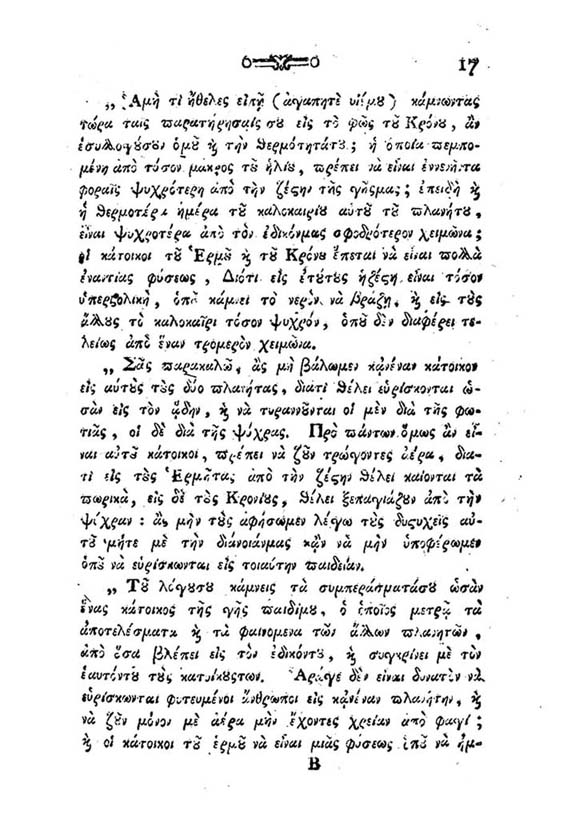 17
„ Ἀμὴ τί ἤθελες εἰπῇ (ἀγαπητὲ υἱέμου) κάμνωντας
τώρα ταῖς παρατήρησαίς σου εἰς τὸ φῶς τοῦ Κρόνου, ἂν
ἐσυλλογύσουν ὁμοῦ ᾗ τὴν θερμοτητάτου; ἡ ὁποία πεμπο-
μένη ἀπὸ τόσον μακρος τοῦ ἡλίου, πρέπει νὰ εἶναι ἐννενῆντα
φοραῖς ψυχρότερη ἀπὸ τὴν ζέςην τῆς γῆςμας; ἐπειδὴ ϗ
ἡ θερμοτέρα ἡμέρα τοῦ καλοκαιρίου αὐτοῦ τοῦ πλανήτου,
εἶναι ψυχροτέρα ἀπὸ τὸν ἐδικόνμας σφοδρότερον χειμῶνα;
οἱ κάτοικοι τοῦ Ἑρμοῦ ϗ τοῦ Κρόνου ἕπεται νὰ εἶναι πολλὰ
ἐναντίας φύσεως, Διότι εἰς ἐτούτους ἡζέςη εἶναι τόσον
ὑπερβολικὴ, ὁποῦ κάμνει τὸ νερὸν νὰ βράζῃ, ϗ εἰς τοὺς
ἄλλους τὸ καλοκαῖρι τόσον ψυχρόν, ὁποῦ δὲν διαφέρει τε-
λείως ἀπὸ ἕναν τρομερὸν χειμῶνα.
„ Σᾶς παρακαλῶ, ἂς μὴ βάλωμεν κᾀνέναν κάτοικον
εἰς αὐτοὺς τοὺς δύο πλανήτας, διάτι θέλει εὑρίσκονται ὡ-
σὰν εἰς τὸν ᾅδην, ϗ νὰ τυρανοῦνται οἱ μὲν διὰ τῆς φω-
τιᾶς, οἱ δὲ διὰ τῆς ψύχρας. Πρὸ πάντων ὅμως ἂν εἶ-
ναι αὐτοῦ κάτοικοι, πρέπει νὰ ζοῦν τρώγοντες ἀέρα, δια-
τὶ εἰς τοὺς Ἑρμῆτας ἀπὸ τὴν ζέςην θέλει καίονται τὰ
πωρικὰ, εἰς δὲ τοὺς Κρονίους, θέλει ξεπαγιάζουν ἀπὸ τὴν
ψύχραν: ἂς μὴν τοὺς ἀφήσωμεν λέγω τοὺς δυςυχεῖς αὐ-
τοῦ μήτε μὲ τὴν διάνοιάνμας κᾂν νὰ μὴν ὑποφέρωμεν
ὁποῦ νὰ εὑρίσκωνται εἰς τοιαύτην παιδείαν.
„ Τοῦ λόγουσου κάμνεις τὰ συμπεράσματάσου ὡσὰν
ἕνας κάτοικος τῆς γῆς παιδίμου, ὁ ὁποῖος μετρᾷ τὰ
ἀποτελέσματα ϗ τὰ φαινομενα τῶν ἄλλων πλανητῶν,
ἀπὸ ὅσα βλέπει εἰς τὸν ἐδικόντου, ϗ συγκρίνει μὲ τὸν
ἑαυτόντου τοὺς κατοίκουςτων. Ἀράγε δὲν εἶναι δυνατὸν νὰ
εὑρίσκωνται φυτευμένοι ἄνθρωποι εἰς κᾀνέναν πλανήτην, ϗ
νὰ ζοῦν μόνον μὲ ἀέρα μὴν ἔχοντες χρείαν ἀπὸ φαγί;
ϗ οἱ κάτοικοι τοῦ ἑρμοῦ νὰ εἶναι μιᾶς φύσεως ὁποῦ νὰ ἠμ-
B